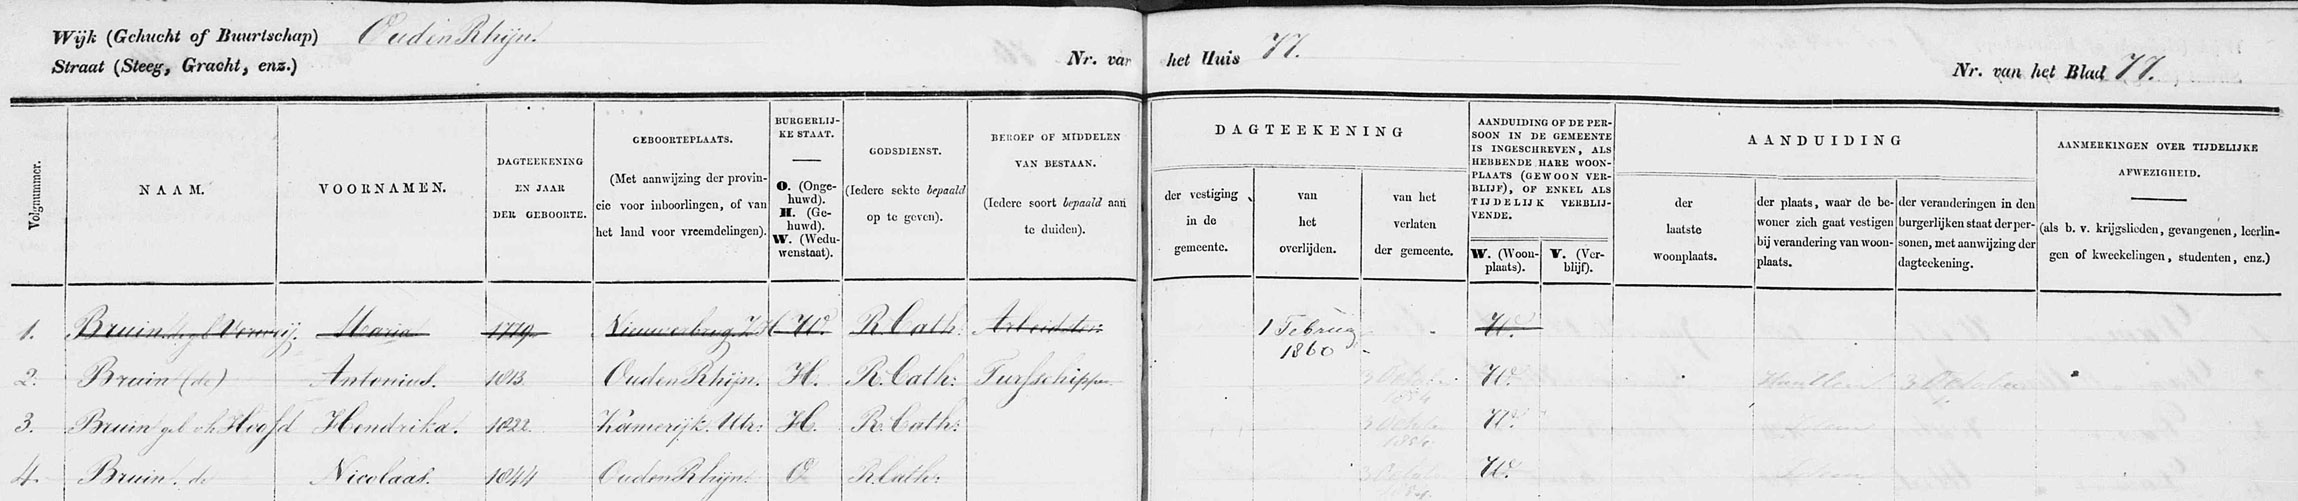 Wijk (Gehucht of Buurtschap) Ouden Rhijn.
Straat (Steeg, Gracht, enz.)
Nr. van het Huis 77.
Nr. van het Blad 77.
Volgnummer.
NAAM.
VOORNAMEN.
DAGTEEKENING
EN JAAR
DER GEBOORTE.
GEBOORTEPLAATS.
(Met aanwijzing der provin-
cie voor inboorlingen, of van
het land voor vreemdelingen).
BURGERLIJ-
KE STAAT.
O. (Onge-
huwd).
H. (Ge-
huwd).
W. (Wedu-
wenstaat).
GODSDIENST.
(Iedere sekte bepaald
op te geven).
BEROEP OF MIDDELEN
VAN BESTAAN.
(Iedere soort bepaald aan
te duiden).
DAGTEEKENING
der vestiging
in de
gemeente.
van
het
overlijden.
van het
verlaten
der gemeente.
AANDUIDING OF DE PER-
SOON IN DE GEMEENTE
IS INGESCHREVEN, ALS
HEBBENDE HARE WOON-
PLAATS (GEWOON VER-
BLIJF), OF ENKEL ALS
TIJDELIJK VERBLIJ-
VENDE.
W. (Woon-
plaats).
V. (Ver-
blijf).
AANDUIDING
der
laatste
woonplaats.
der plaats, waar de be-
woner zich gaat vestigen
bij verandering van woon-
plaats.
der veranderingen in den
burgerlijken staat der per-
sonen, met aanwijzing der
dagteekening.
AANMERKINGEN OVER TIJDELIJKE
AFWEZIGHEID.
(als b. v. krijgslieden, gevangenen, leerlin-
gen of kweekelingen, studenten, enz.)
1. Bruin de gb Verweij. Maria 1779 Nieuwerbrug Z.H W. R. Cath: Arbeidster 1 Februarij W.
1860
2. Bruin (de) Antonius. 1813 Ouden Rhijn. H. R. Cath: Turfschipper 3 October W. 3 October
1864
3. Bruin geb v.h. Hoofd Hendrika. 1822 Kamerijk. Utr: H. R. Cath: 3 October W.
1864
4. Bruin. de Nicolaas. 1844 Ouden Rhijn. O R. Cath: 3 October W.
1864